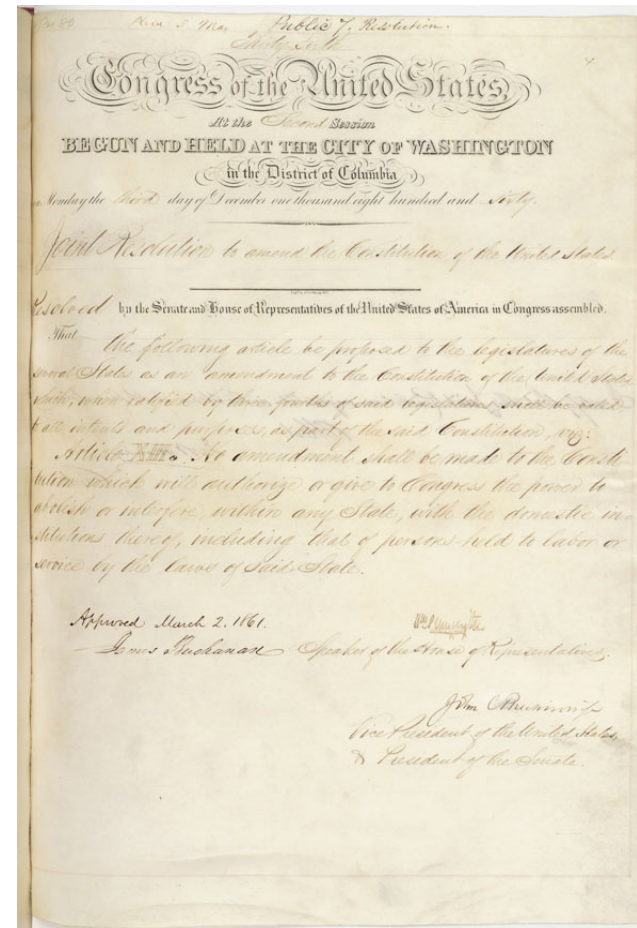 Public 7. Resolution.
Thirty Sixth
Congress of the United States,
At the Second Session
BEGUN AND HELD AT THE CITY OF WASHINGTON
in the District of Columbia
on Monday the third day of December one thousand eight hundred and sixty.
Joint Resolution to amend the Constitution of the United States.
Resolved by the Senate and House of Representatives of the United States of America in Congress assembled,
That the following article be proposed to the legislatures of the
several States as an amendment to the Constitution of the United States,
which, when ratified by three fourths of said legislatures, shall be valid
to all intents and purposes, as part of the said Constitution, viz:
Article XIII. No amendment shall be made to the Consti-
tution which will authorize or give to Congress the power to
abolish or interfere, within any State, with the domestic in-
stitutions thereof, including that of persons held to labor or
service by the laws of said State.
Approved March 2. 1861.
James Buchanan
Speaker of the House of Representatives.
John C Breckinridge
Vice President of the United States,
& President of the Senate.